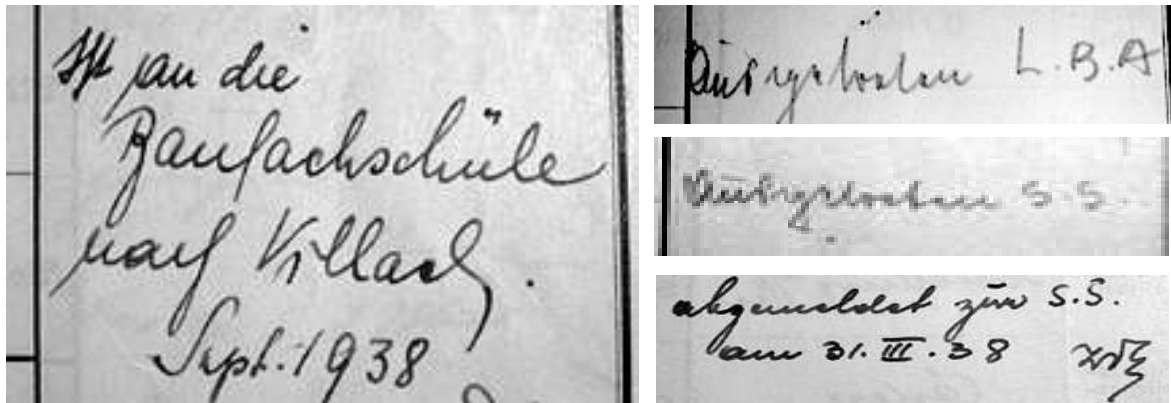 Ist an die
Baufachschule
nach Villach.
Sept. 1938
Ausgetreten L.B.A
Ausgetreten S.S.
abgemeldet zur S.S.
am 31. III. 38